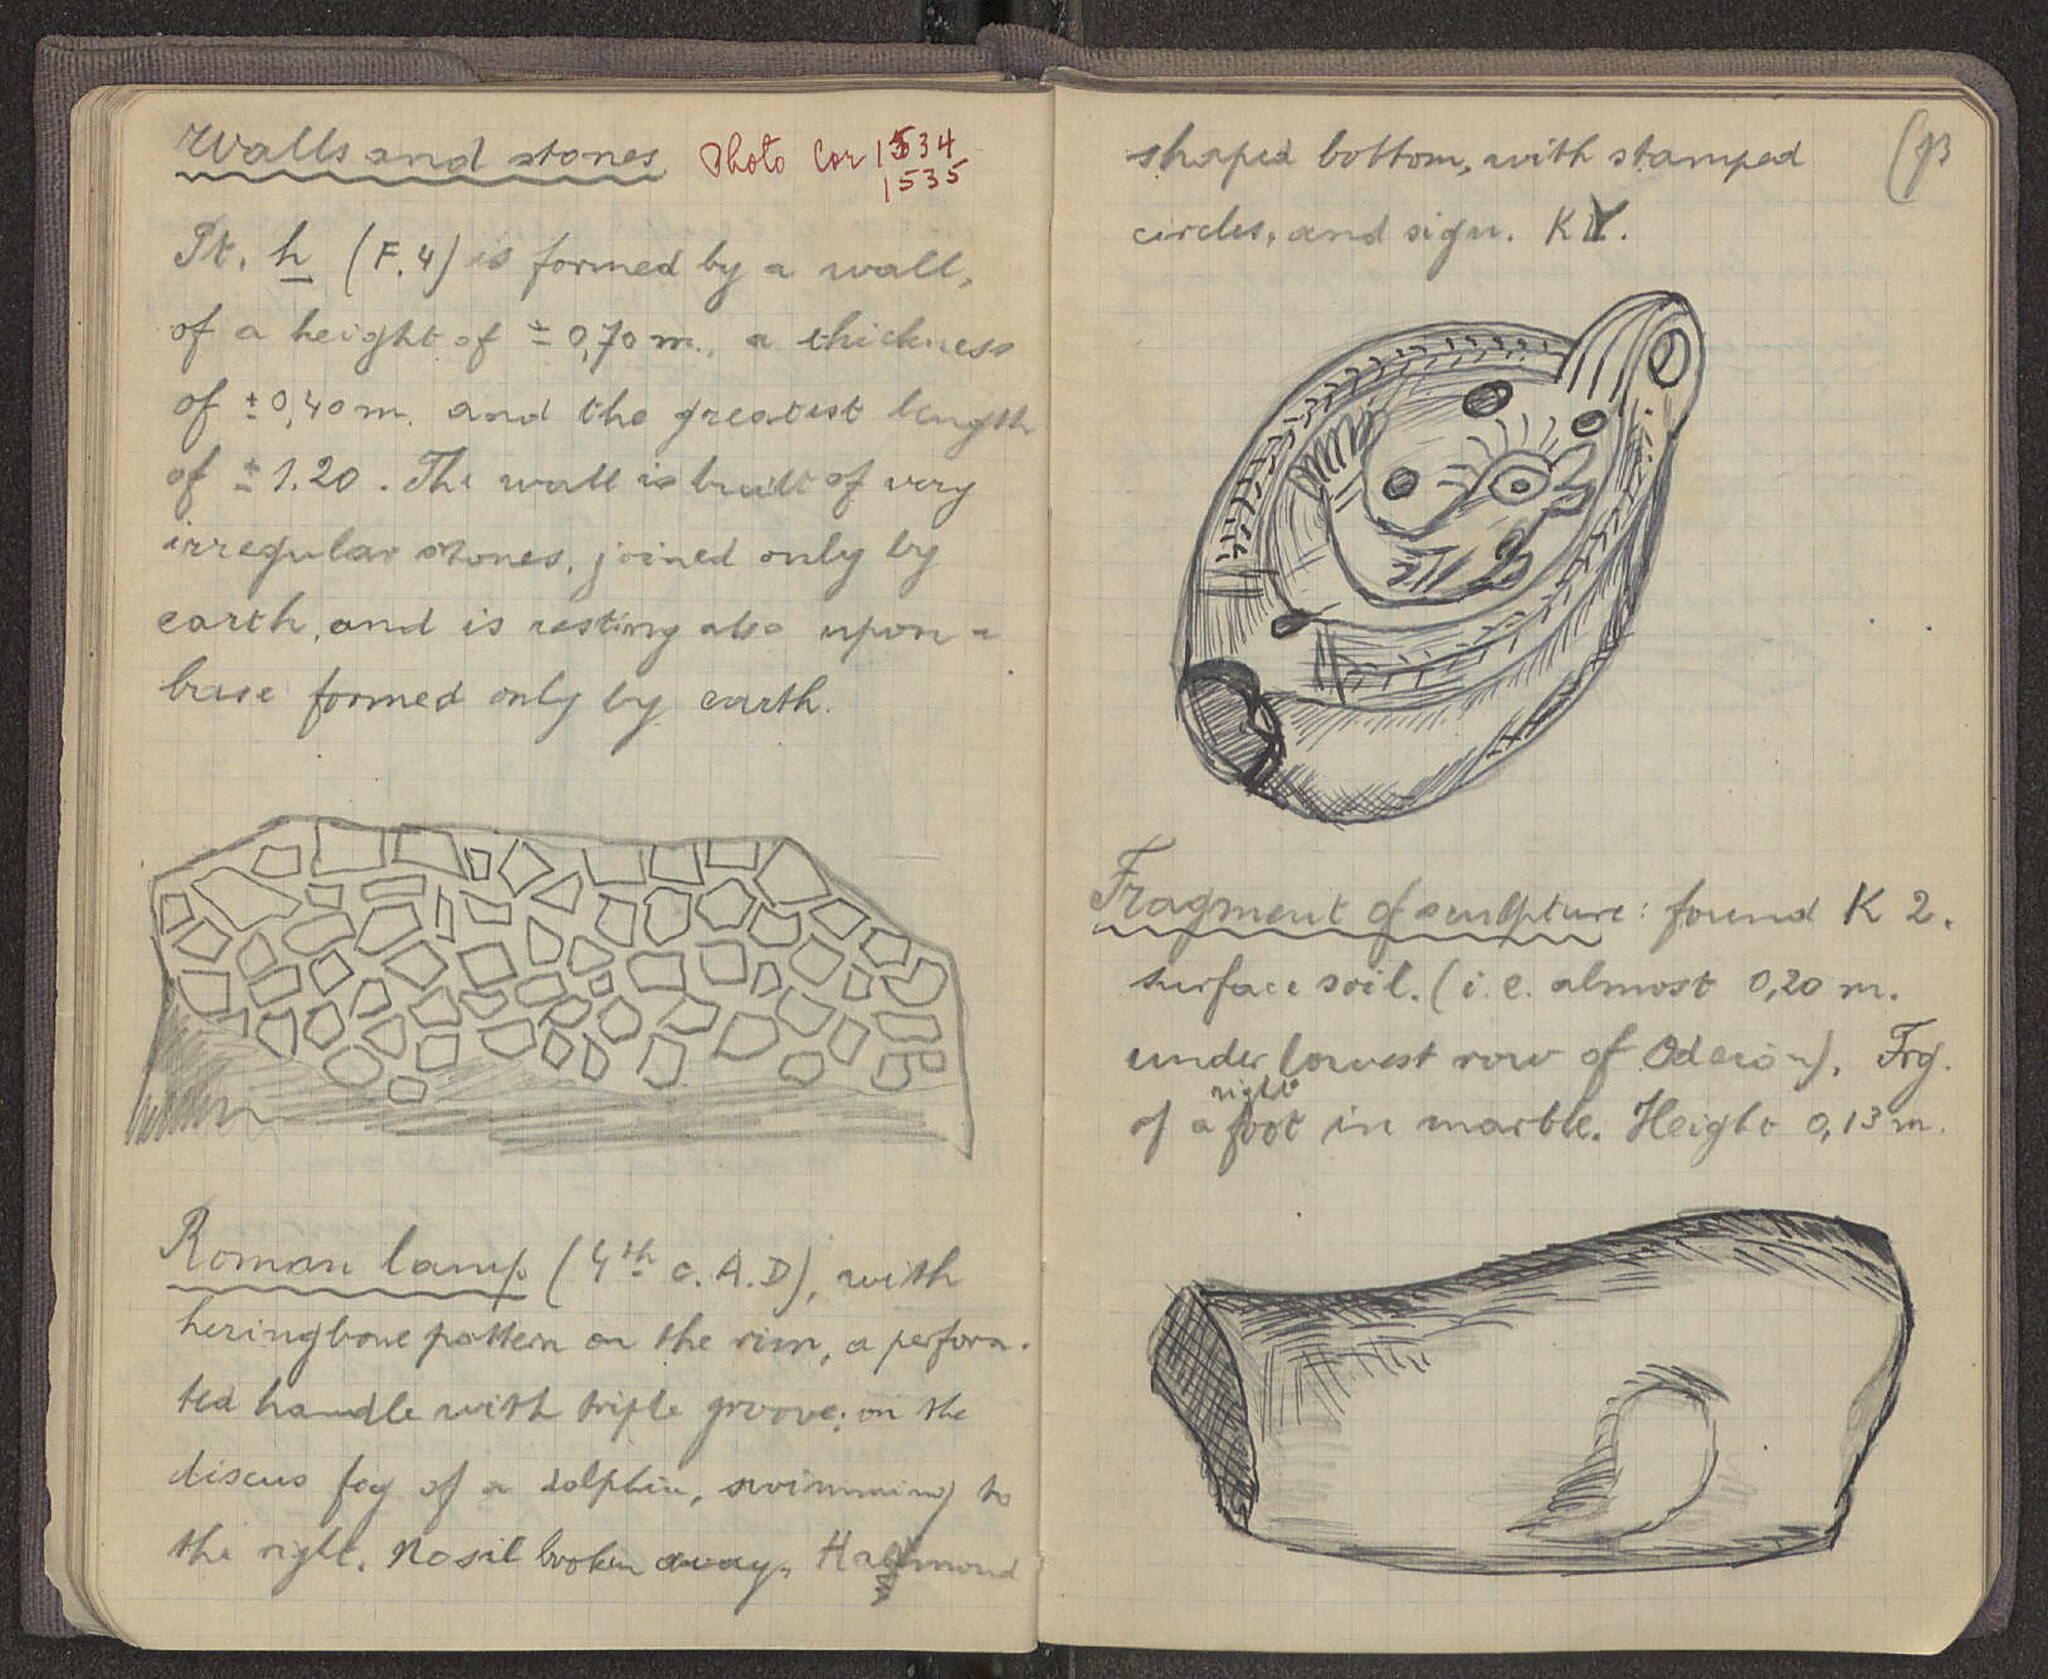 Walls and stones Photo Cor 1534
1535
Pt. h (F.4) is formed by a wall,
of a height of ± 0,70 m., a thickness
of ± 0,40 m. and the greatest length
of ± 1.20. The wall is built of very
irregular stones, joined only by
earth, and is resting also upon a
base formed only by earth.
Roman lamp (4th c. A.D), with
heringbone pattern on the rim, a perfora-
ted handle with triple groove; on the
discus fog of a dolphin, swimming to
the right. Nosil broken away.
shaped bottom, with stamped
circles, and sign. KY.
Fragment of sculpture: found K 2.
surface soil. (i.e. almost 0,20 m.
under lowest row of Odeion). Frg.
of a right foot in marble. Height 0,13 m.